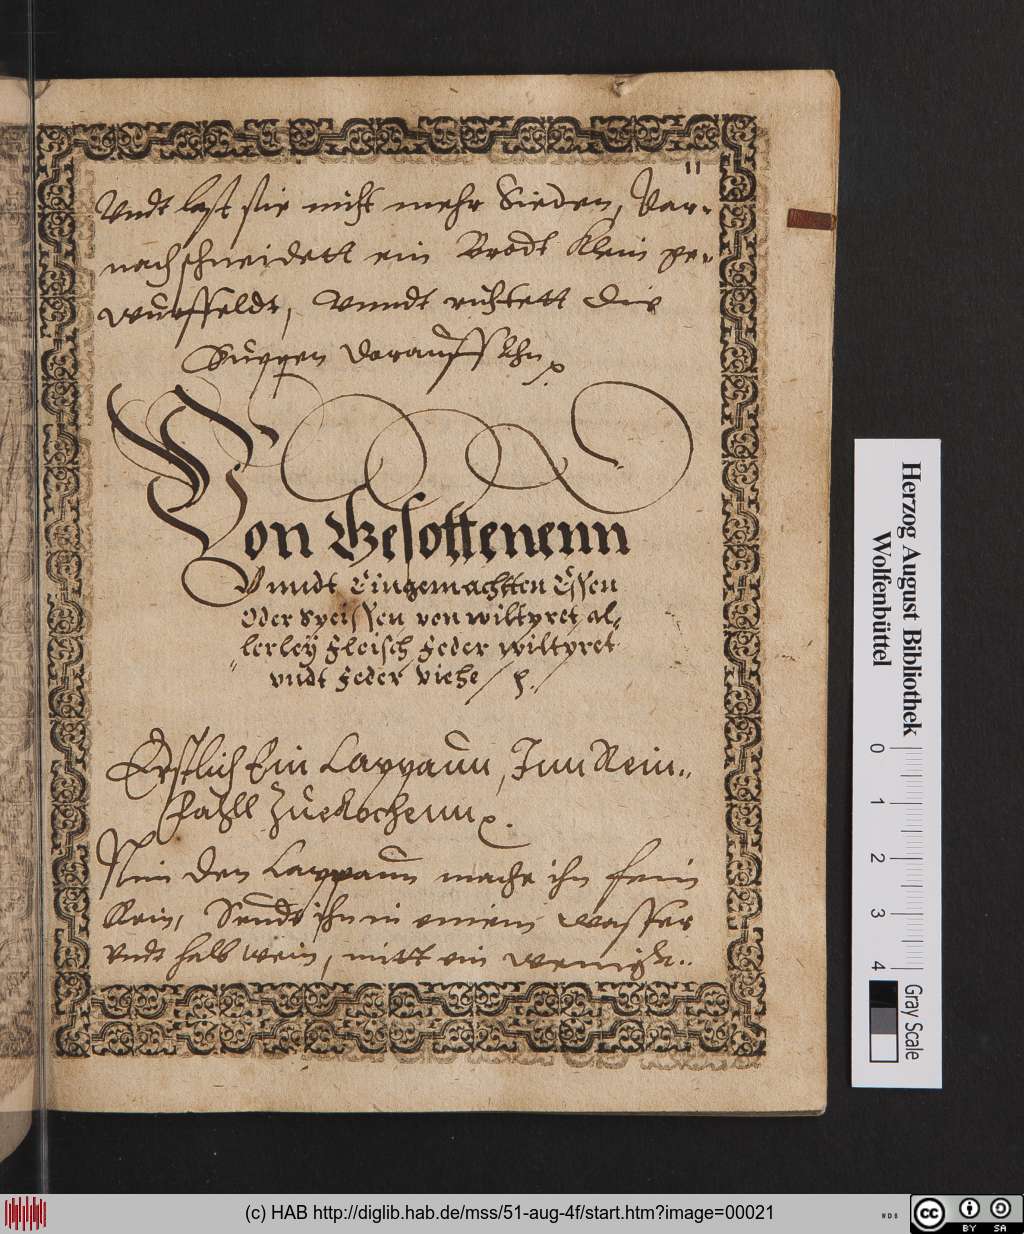 11
Vndt last sie nicht mehr Sieden, Dar-
nach schneidett ein Brodt klein ge-
würffeldt, Vnndt richtett die
Suppen darauff ahn
Von Gesottenenn
Vnndt Eingemachtten Essen
Oder Speissen von wiltpret al-
lerley Fleisch Feder wiltpret
vndt Feder viehe /
Erstlich Ein Cappaun, Inn Rein-
fahll Zue Kochenn
Nim den Cappaun mache ihn fein
Rein, Seudt ihn in einem wasser
Vndt halb wein, mitt ein wenigk
Herzog August Bibliothek
Wolfenbüttel
0 1 2 3 4
Gray Scale
(c) HAB http://diglib.hab.de/mss/51-aug-4f/start.htm?image=00021
WDB
cc
BY SA